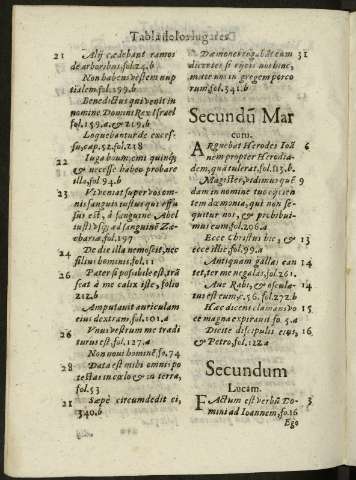 Tabla de los lugares
21 Alij cædebant ramos
de arboribus. fol. 24. b
Non habens vestem nup
tialem. fol. 199. b
Benedictus qui venit in
nomine Domini Rex Israel
fol. 159. a. & 219. b
Loquebantur de exces-
su, cap. 52. fol. 218
22 Iuga boum emi quinq;
& necesse habeo probare
illa, fol. 94. b
23 Vt veniat super vos om-
nis sanguis iustus qui effu
sus est, à sanguine Abel
iusti vsq; ad sanguinē Za-
chariæ, fol. 197
24 De die illa nemo scit, nec
filius hominis. fol. 11
26 Pater si possibile est, trā
seat à me calix iste, folio
212. b
Amputauit auriculam
eius dextram, fol. 101. a
26 Vnus vestrum me tradi
turus est. fol. 127. a
Non noui hominē. fo. 74
28 Data est mihi omnis po
testas in cælo & in terra,
fol. 53
21 Sæpè circumdedit ei,
340. b
Dæmones rogabāt eum 31
dicētes si eijcis nos hinc,
mitte nos in gregem porco
rum fol. 341. b
Secundū Mar
cum.
ARguebat Herodes Ioā 6
nem propter Herodia-
dem, quā tulerat. fol. 113. b.
Magister, vidimus quē 9
dam in nomine tuo eijcien
tem dæmonia, qui non se-
quitur nos, & prohibui-
mus eum. fol. 206. a
Ecce Christus hic, & 13
ecce illic, fol. 99. a
Antiquam gallus can 14
tet, ter me negabis, fol. 261.
Aue Rabi, & oscula- 14
tus est eum. c. 56. fo. 272. b
Hæc dicens clamans vo 15
ce magna expirauit fo. 5. a
Dicite discipulis eius, 16
& Petro, fol. 122. a
Secundum
Lucam.
FActum est verbū Do- 3
mini ad Ioannem, fo. 16
Ego